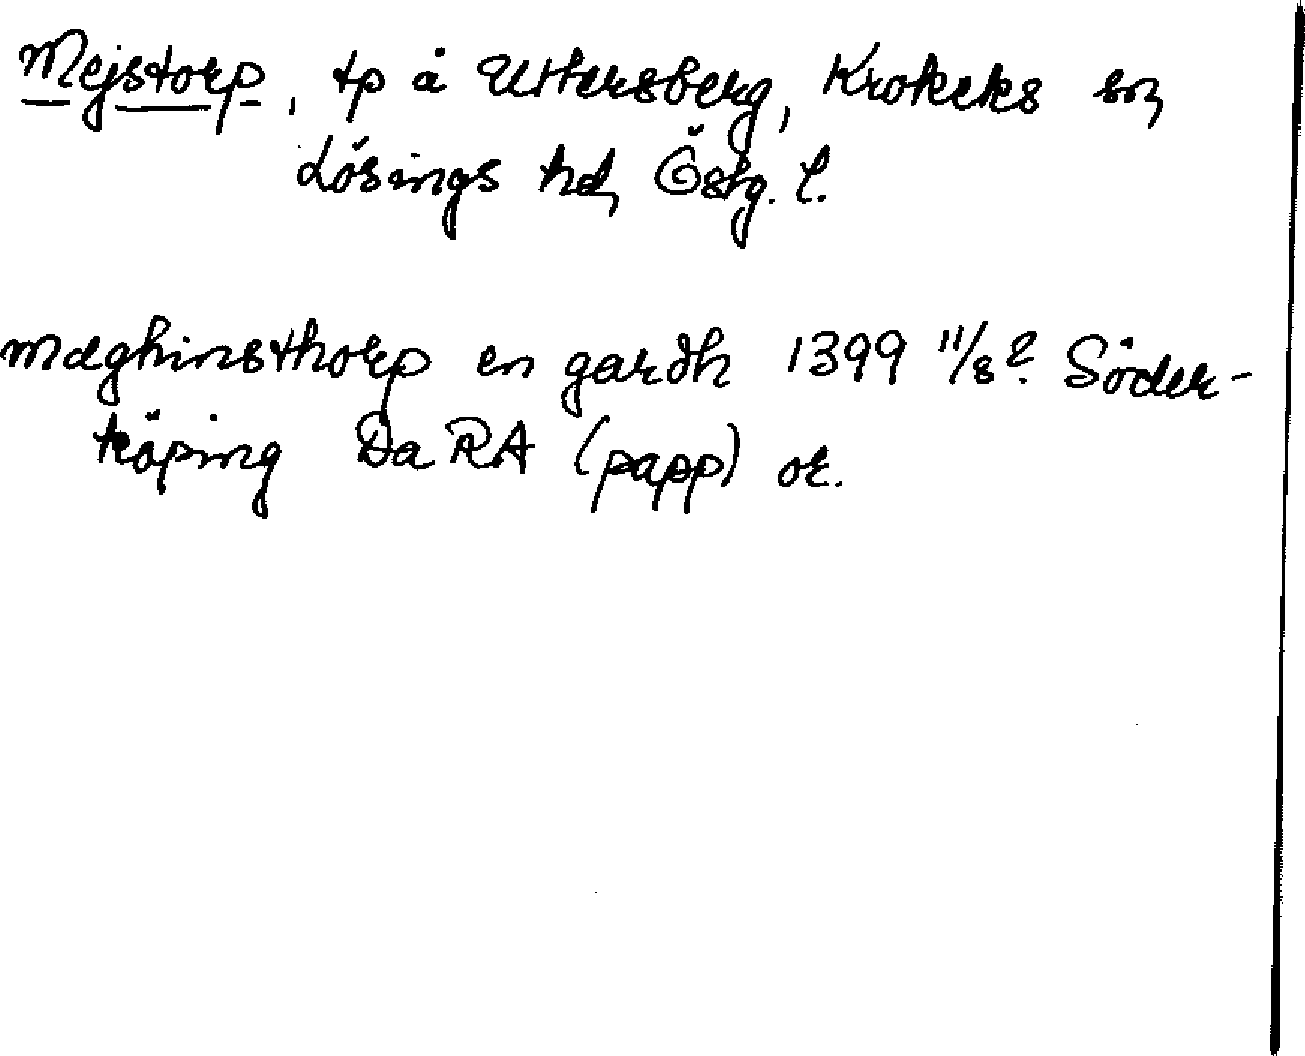 Mejstorp, tp å Uttersberg, Krokeks sn,
Lösings hd, Östg. l.
mæghinsthorp en gardh 1399 11/8? Söder-
köping Da RA (papp) or.